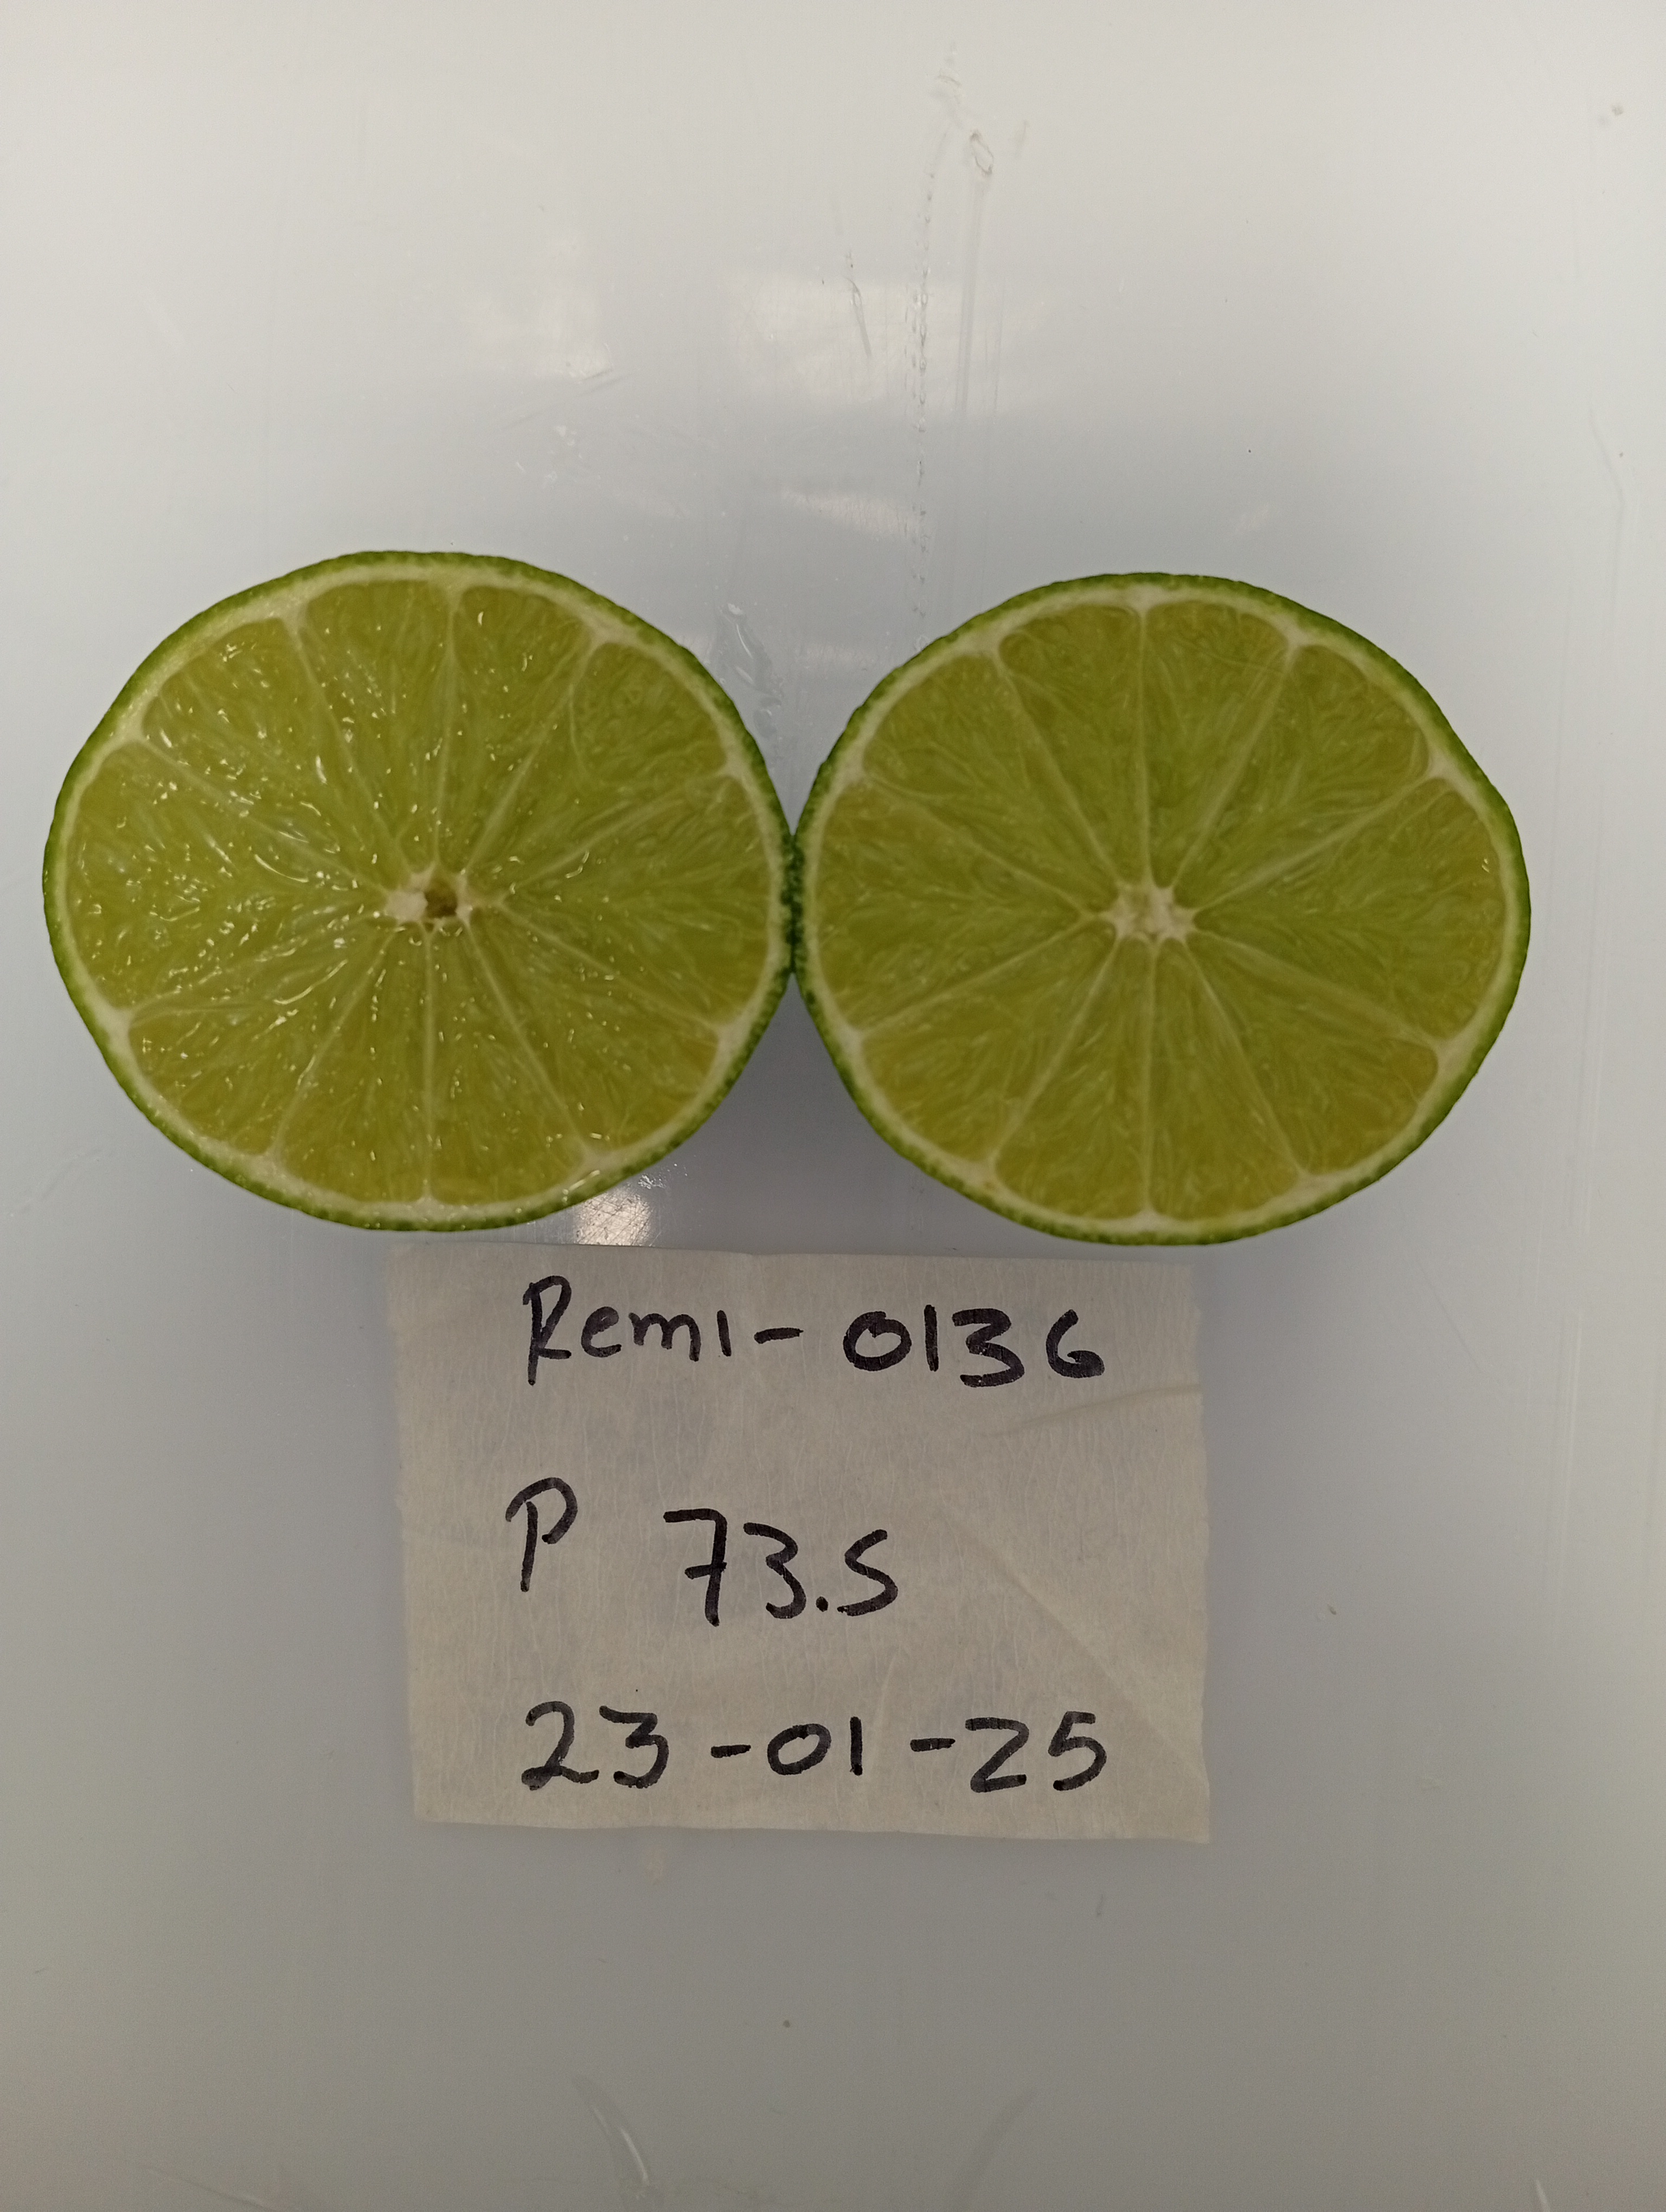 Remi-0136
P 73.5
23-01-25